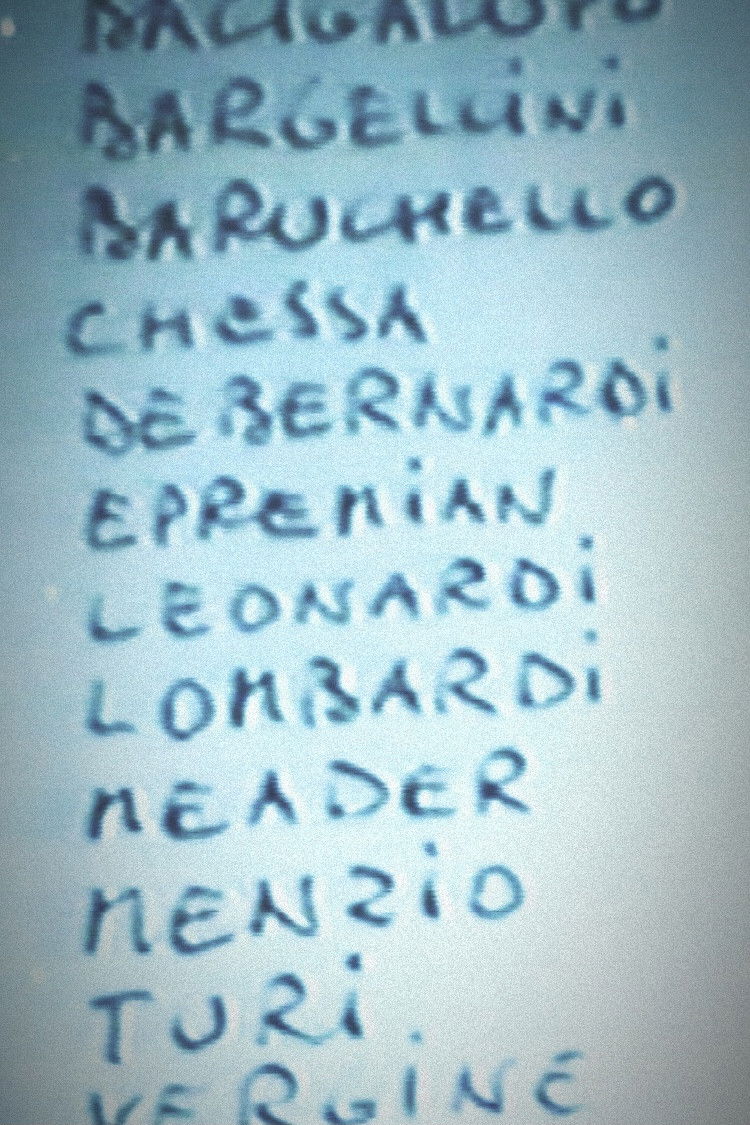 BACIGALUPO
BARGELLiNi
BARUCHELLO
CHESSA
DEBERNARDi
EPREMiAN
LEONARDi
LOMBARDi
MEADER
MENZiO
TURi
VERGiNE